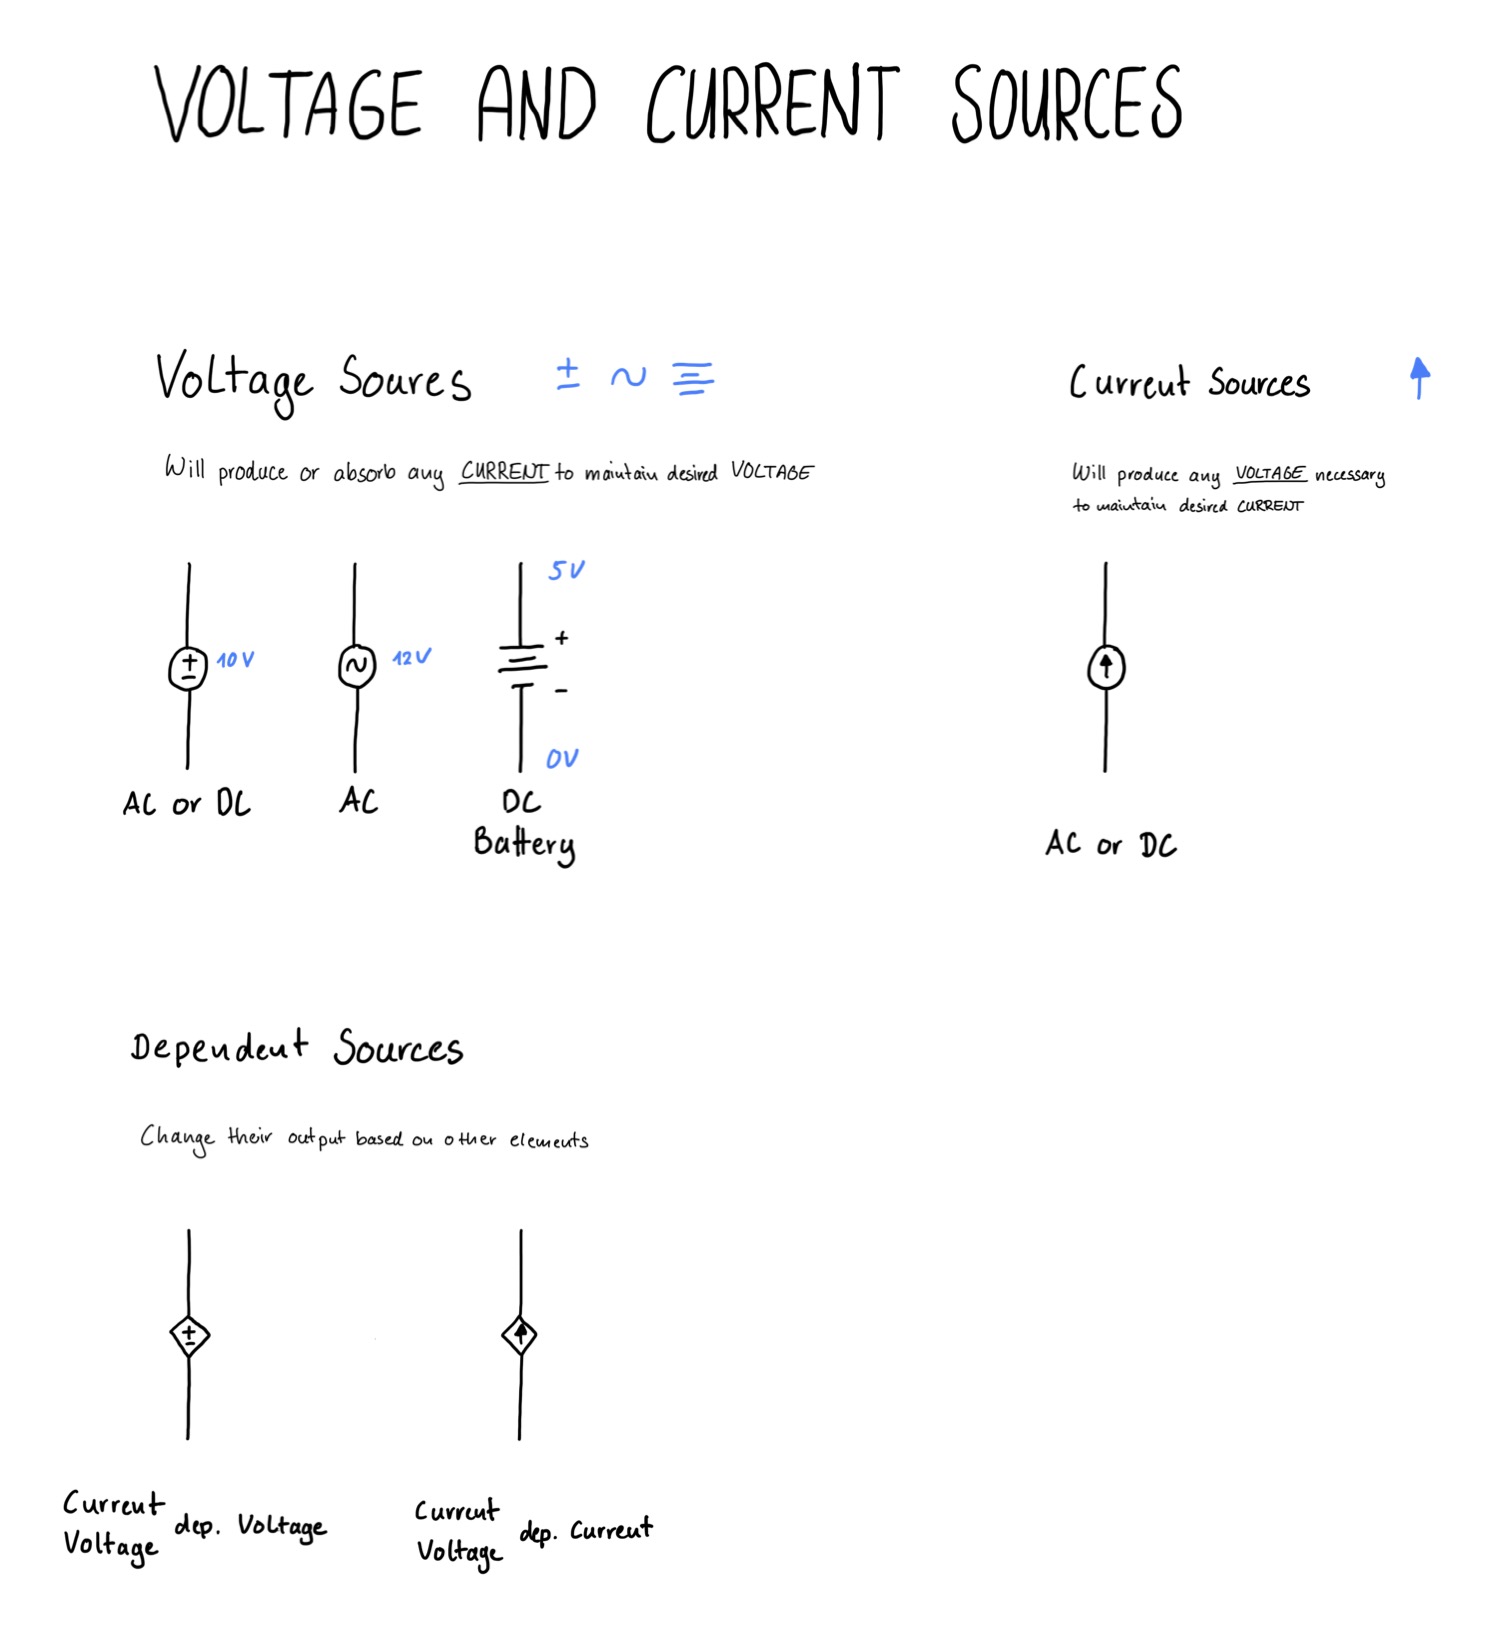 VOLTAGE AND CURRENT SOURCES
Voltage Soures ± ~
Will produce or absorb any CURRENT to maintain desired VOLTAGE
+
-
10V
AC or DC
~
12V
AC
5V
+
-
0V
DC
Battery
Current Sources
Will produce any VOLTAGE necessary
to maintain desired CURRENT
AC or DC
Dependent Sources
Change their output based on other elements
±
Current
Voltage
dep. Voltage
Current
Voltage
dep. Current